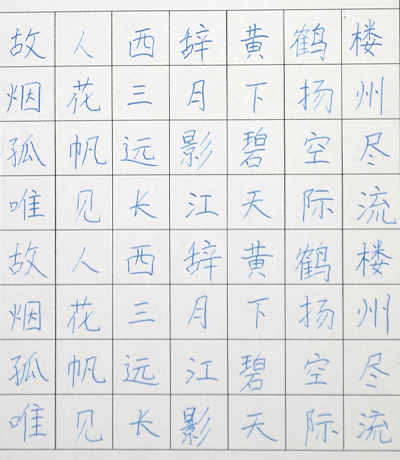 故人西辞黄鹤楼
烟花三月下扬州
孤帆远影碧空尽
唯见长江天际流
故人西辞黄鹤楼
烟花三月下扬州
孤帆远江碧空尽
唯见长影天际流